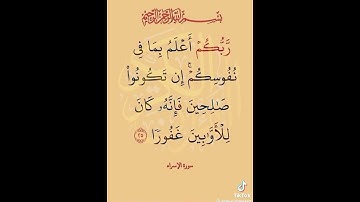 بسم الله الرحمن الرحيم
رَّبُّكُمْ أَعْلَمُ بِمَا فِى
نُفُوسِكُمْ ۚ إِن تَكُونُوا۟
صَـٰلِحِينَ فَإِنَّهُۥ كَانَ
لِلْأَوَّٰبِينَ غَفُورًا ٢٥
سورة الإسراء
TikTok